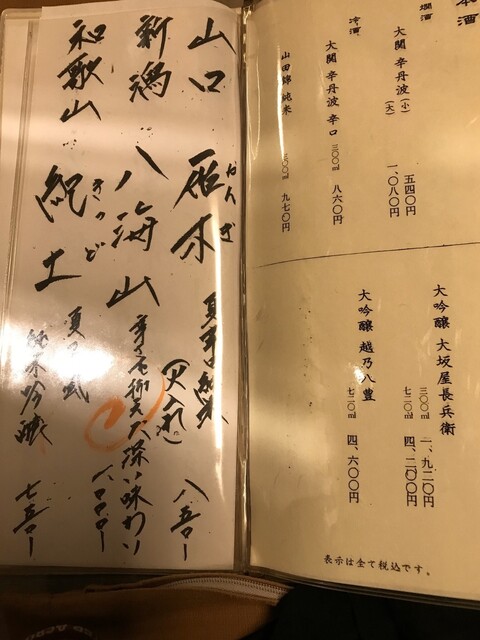 本酒
燗酒
大関 辛丹波 (小) 五四〇円
(大) 一、〇八〇円
冷酒
大関 辛丹波 辛口 三〇〇ml 八六〇円
山田錦 純米 三〇〇ml 九七〇円
大吟醸 大坂屋長兵衛
三〇〇ml 一、九二〇円
七二〇ml 四、二〇〇円
大吟醸 越乃八豊
七二〇ml 四、六〇〇円
表示は全て税込です。
山口 雁木 がんぎ 夏 純米 八五〇ー
新潟 八海山 味わい 一、〇〇〇ー
和歌山 紀土 きっど 夏ノ 純米吟醸 七五〇ー